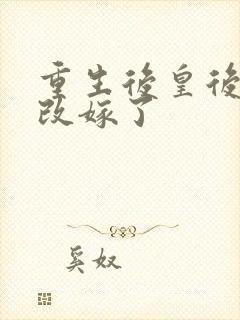 重生後皇後
改嫁了
奚奴